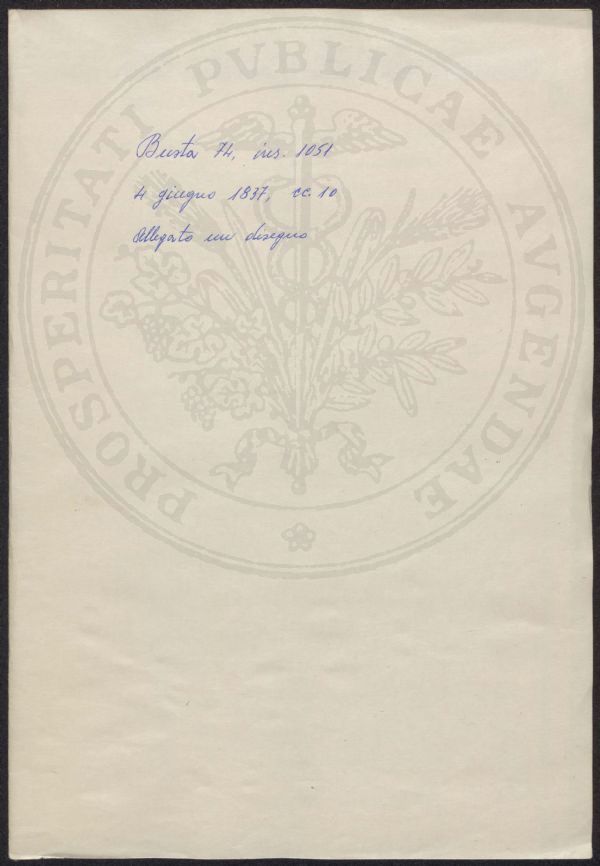 PROSPERITATI PVBLICAE AVGENDAE
Busta 74, ins. 1051
4 giugno 1837, cc. 10
Allegato un disegno